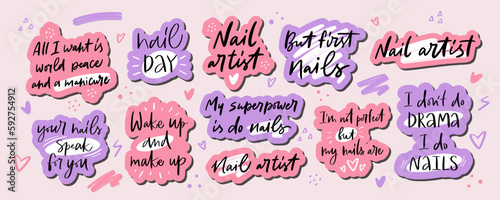 All I want is
world peace
and a manicure
nail
DAY
Nail
artist
But first
nails
Nail artist
your nails
speak
for you
Wake up
and
make up
My superpower
is do nails
Nail artist
I'm not perfect
but
my nails are
I don't do
DRAMA
I do
NAILS
Adobe Stock | #592754912